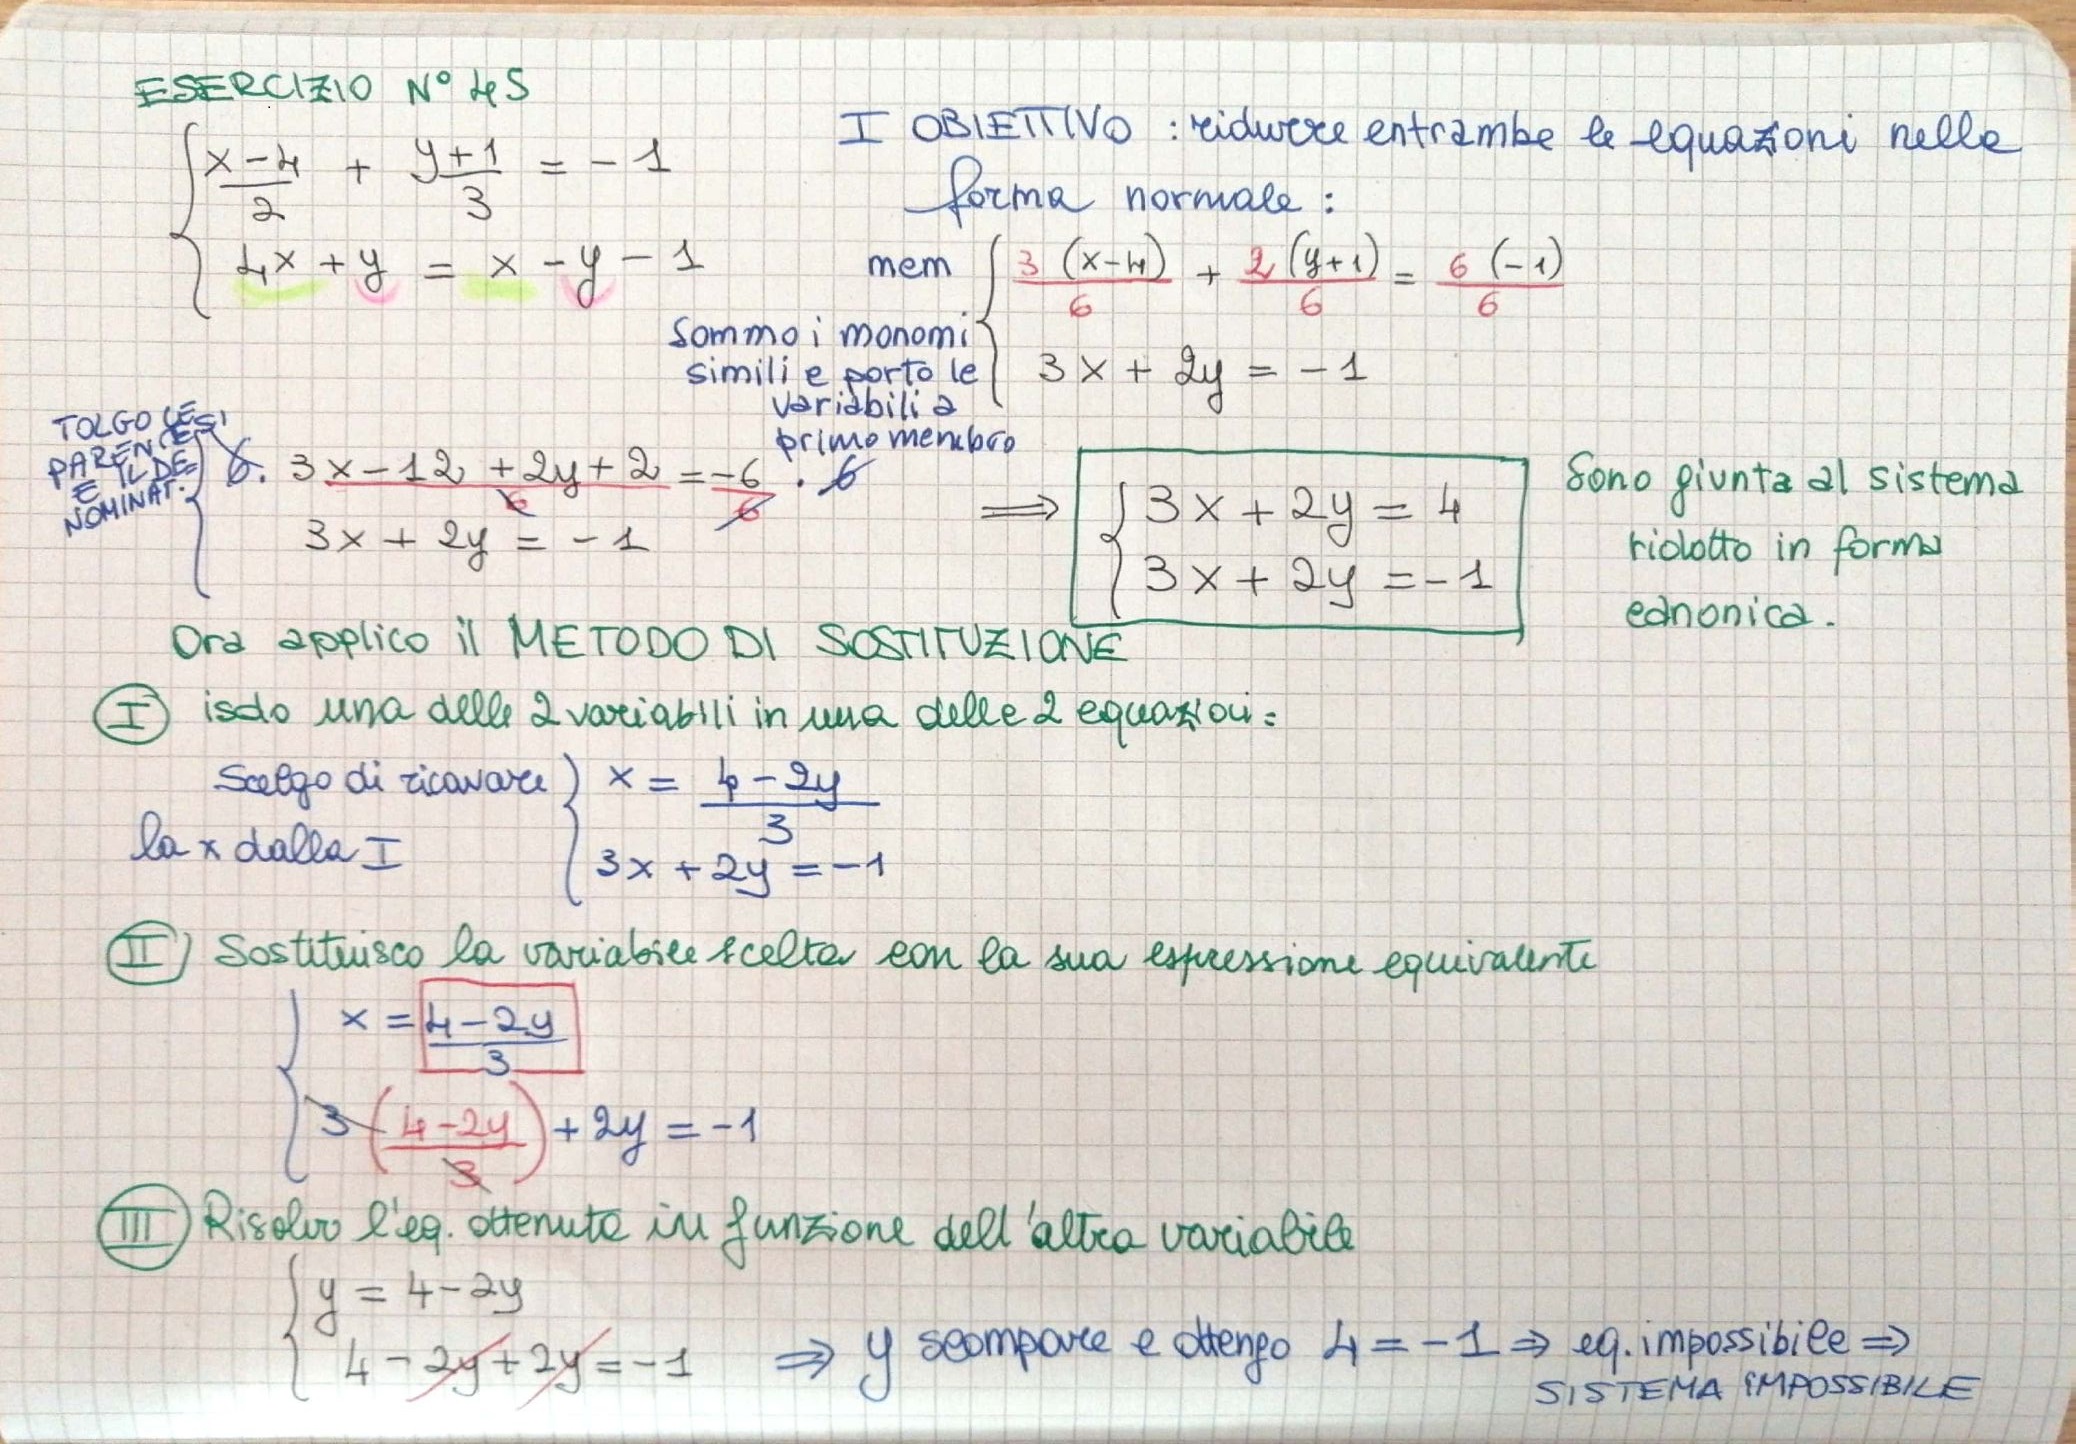 ESERCIZIO N° 45
{ (x-4)/2 + (y+1)/3 = -1
4x + y = x - y - 1
I OBIETTIVO : ridurre entrambe le equazioni nella
forma normale :
mem { 3(x-4)/6 + 2(y+1)/6 = 6(-1)/6
3x + 2y = -1
Sommo i monomi
simili e porto le
variabili a
primo membro
TOLGO LE
PARENTESI
E IL DE
NOMINAT.
{ 6. (3x-12+2y+2)/6 = -6/6 . 6
3x + 2y = -1
⟹ { 3x + 2y = 4
3x + 2y = -1
Sono giunta al sistema
ridotto in forma
canonica.
Ora applico il METODO DI SOSTITUZIONE
I isolo una delle 2 variabili in una delle 2 equazioni:
Scelgo di ricavare
la x dalla I
{ x = (4-2y)/3
3x + 2y = -1
II Sostituisco la variabile scelta con la sua espressione equivalente
{ x = (4-2y)/3
3((4-2y)/3) + 2y = -1
III Risolvo l'eq. ottenuta in funzione dell'altra variabile
{ y = 4-2y
4 - 2y + 2y = -1 ⟹ y scompare e ottengo 4 = -1 ⟹ eq. impossibile ⟹
SISTEMA IMPOSSIBILE